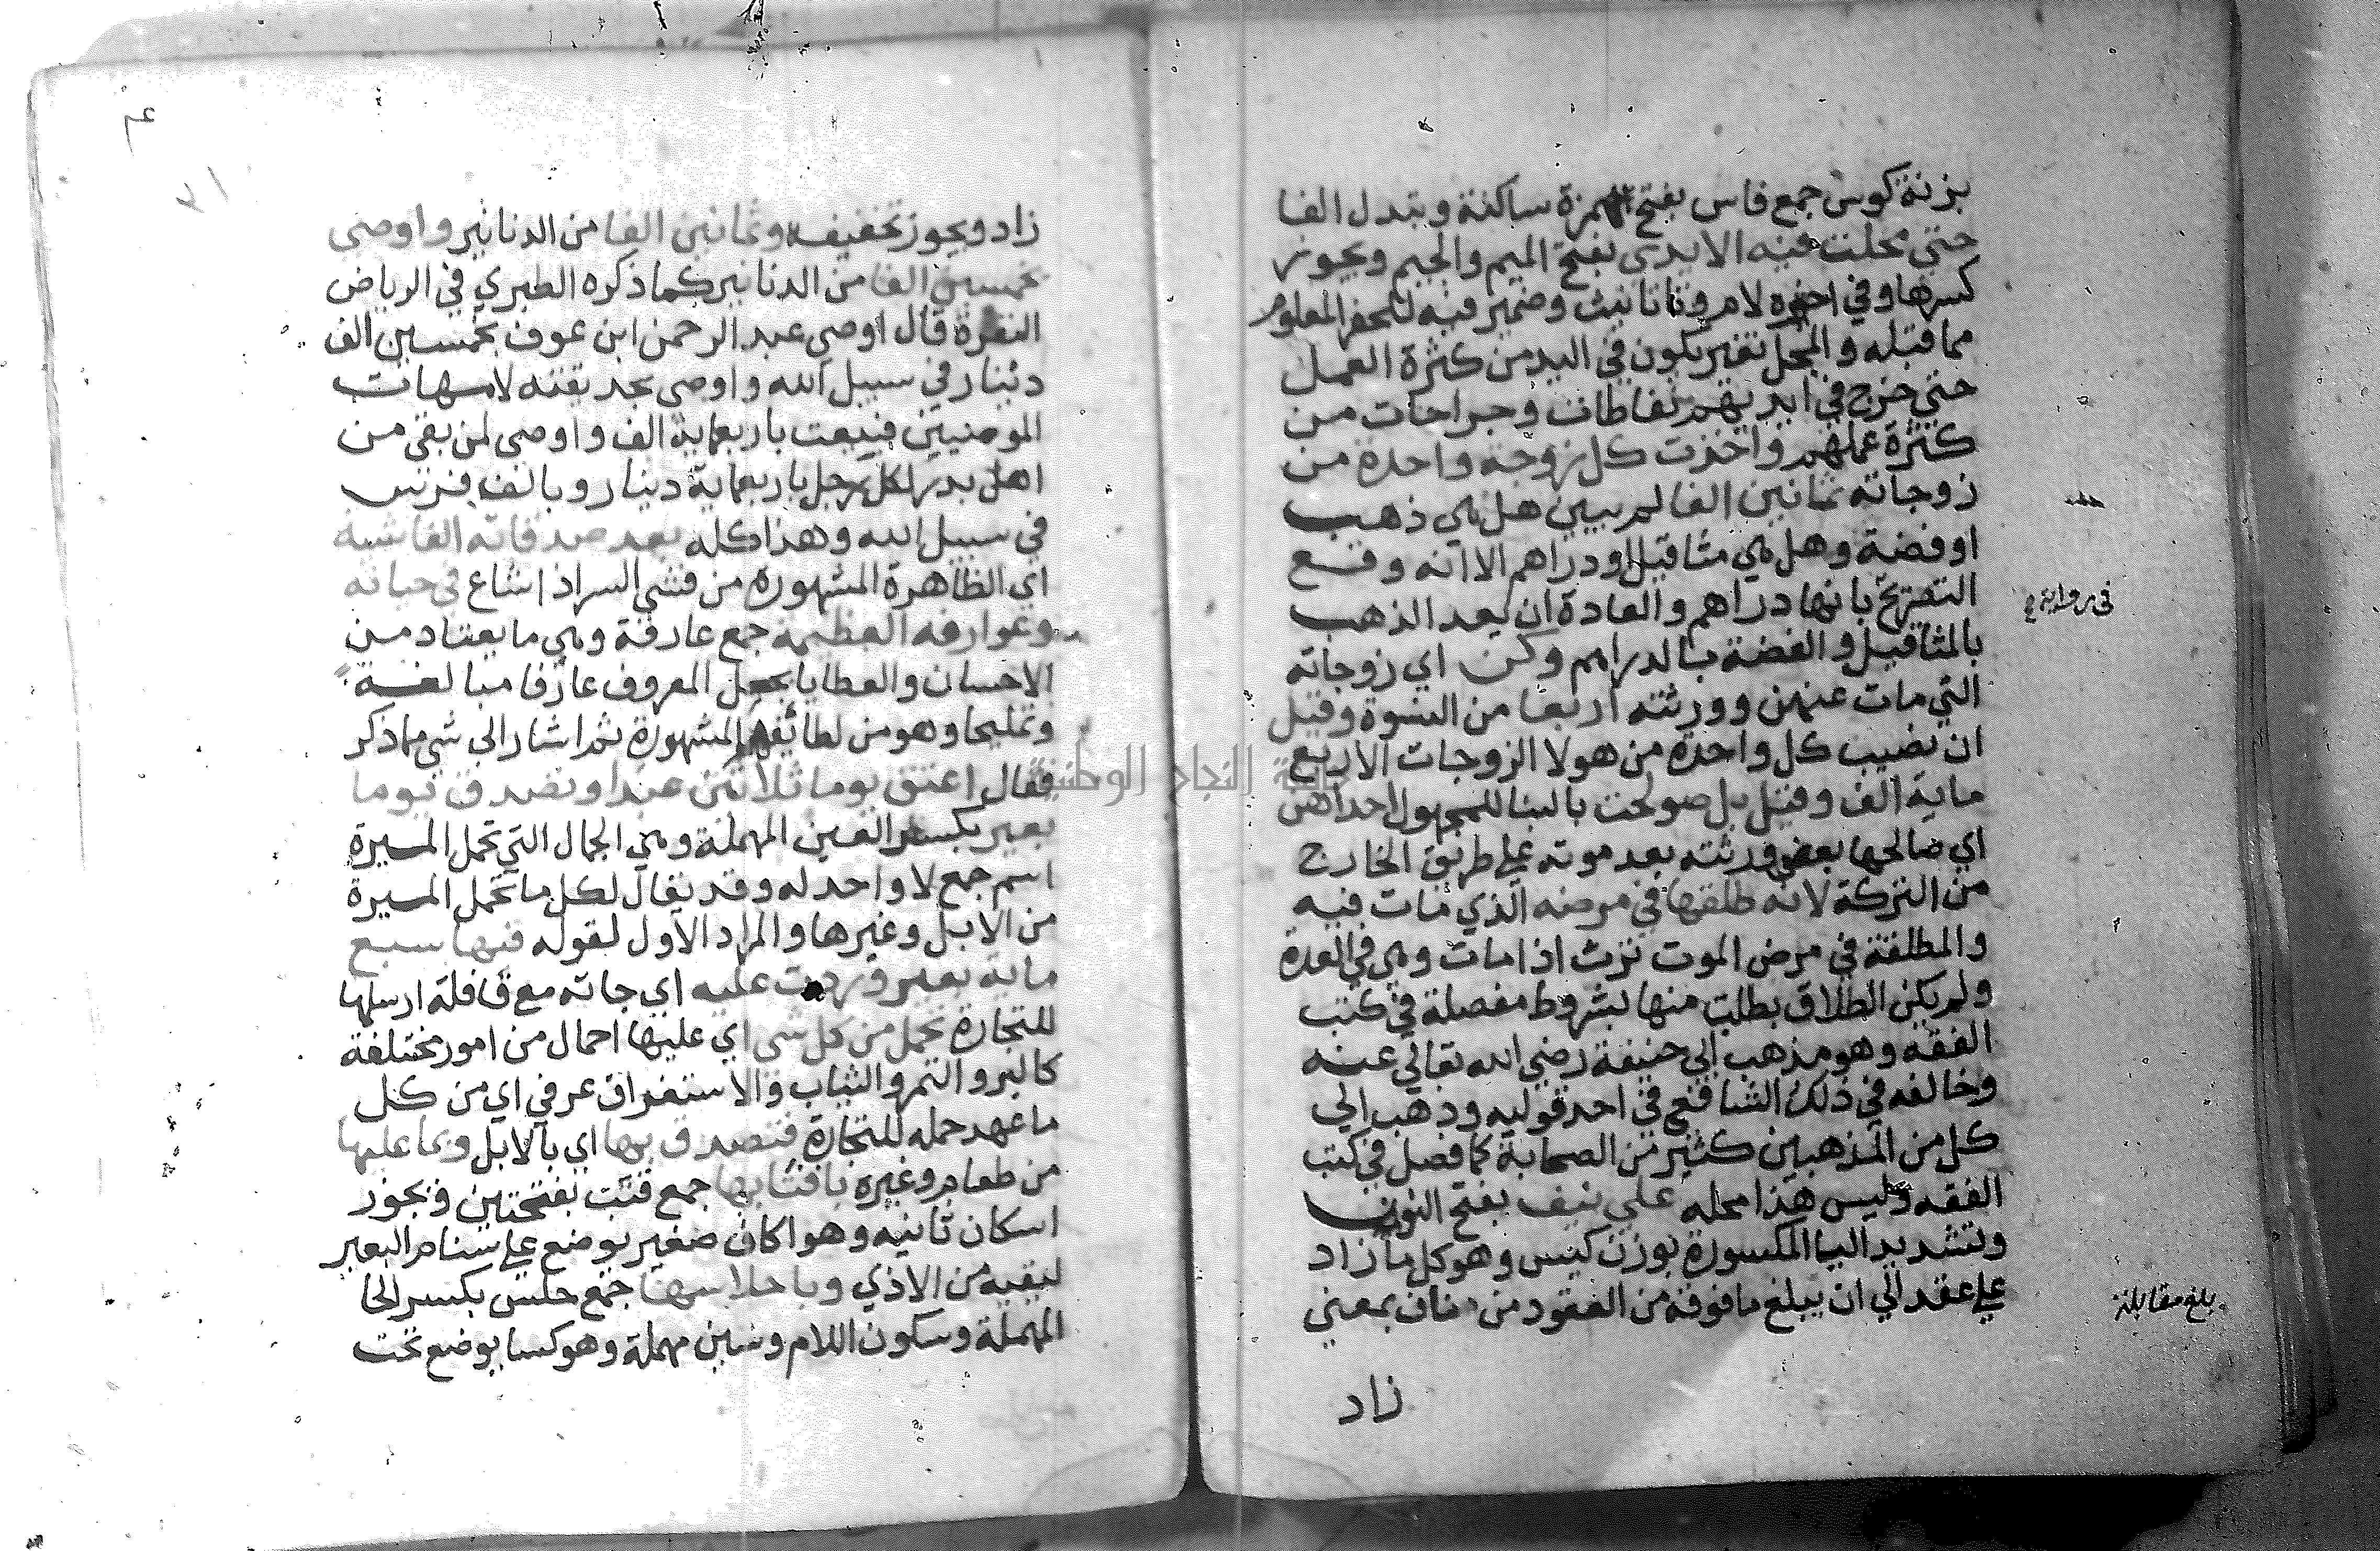 بزنة كوس جمع فاس بفتح الهمزة ساكنة وبتدل الفا
حتي مجلت فيه الايدي بفتح الميم والجيم ويجوز
كسرها وفي اخره لام وتا تانيث وضمير فيه للحفر المعلوم
مما قبله والمجل تغير يكون في اليد من كثرة العمل
حتي خرج في ايديهم نفاطات وجراحات من
كثرة عملهم واخذت كل زوجة واحدة من
زوجاته ثمانين الفا لم يبين هل هي ذهب
او فضة وهل هي مثاقيل او دراهم الا انه وقع
في رواية
التصريح بانها دراهم والعادة ان يعد الذهب
بالمثاقيل والفضة بالدراهم وكن اي زوجاته
التي مات عنهن وورثته اربعا من النسوة وقيل
ان نصيب كل واحدة من هولا الزوجات الاربع
ماية الف وقيل بل صولحت بالبنا للمجهول احداهن
اي صالحها بعض ورثته بعد موته علي طريق الخارج
من التركة لانه طلقها في مرضه الذي مات فيه
والمطلقة في مرض الموت ترث اذا مات وهي في العدة
ولم يكن الطلاق بطلب منها بشروط مفصلة في كتب
الفقه وهو مذهب ابي حنيفة رضي الله تعالي عنه
وخالفه في ذلك الشافعي في احد قوليه وذهب الي
كل من المذهبين كثير من الصحابة كما فصل في كتب
الفقه وليس هذا محله علي نيف بفتح النون
وتشديد اليا المكسورة بوزن كيس وهو كل ما زاد
علي عقد الي ان يبلغ ما فوقه من العقود من ناف بمعني
بلغ مقابلة
زاد
زاد ويجوز تخفيفه وثمانين الفا من الدنانير واوصي
بخمسين الفا من الدنانير كما ذكره الطبري في الرياض
النضرة قال اوصي عبد الرحمن ابن عوف بخمسين الف
دينار في سبيل الله واوصي بحديقته لامهات
المومنين فبيعت باربعماية الف واوصي لمن بقي من
اهل بدر لكل رجل باربعماية دينار وبالف فرس
في سبيل الله وهذا كله بعد صدقاته الفاشية
اي الظاهرة المشهورة من فشي السر اذا شاع في حياته
وعوارفه العظيمة جمع عارفة وهي ما يعتاد من
الاحسان والعطايا بجعل المعروف عارفا مبالغة
وتمليحا وهو من لطائفهم المشهورة ثم اشار الي شي مما ذكر
فقال اعتق يوما ثلاثين عبدا وتصدق يوما
بعير بكسر العين المهملة وهي الجمال التي تحمل المسيرة
اسم جمع لا واحد له وقد يقال لكل ما تحمل المسيرة
من الابل وغيرها والمراد الاول لقوله فيها سبع
ماية بعير وردت عليه اي جاته مع قافلة ارسلها
للتجارة تحمل من كل شي اي عليها احمال من امور مختلفة
كالبر والتمر والثياب والاستغراق عرفي اي من كل
ما عهد حمله للتجارة فتصدق بها اي بالابل وبما عليها
من طعام وغيره باقتابها جمع قتب بفتحتين ويجوز
اسكان ثانيه وهو اكاف صغير يوضع علي سنام البعير
ليقيه من الاذي وباحلاسها جمع حلس بكسر الحا
المهملة وسكون اللام وسين مهملة وهو كسا يوضع تحت